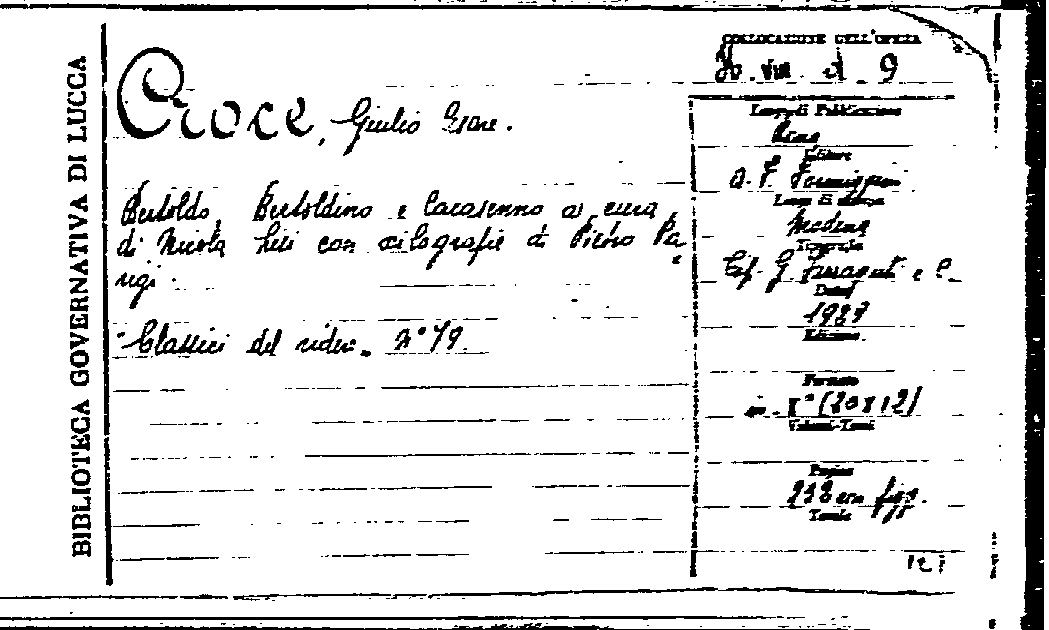 BIBLIOTECA GOVERNATIVA DI LUCCA
COLLOCAZIONE DELL'OPERA
VIII d 9
Croce, Giulio Cesare.
Bertoldo, Bertoldino e Cacasenno a cura
di Nicola con xilografie di Pietro Pa
rigi.
Classici del ridere. N° 79.
Luogo di Pubblicazione
Roma
Editore
A. F. Formiggini
Luogo di stampa
Modena
Tipografia
Tip. G. Ferraguti e C.
Data
Edizione
Formato
in-8° (20x12)
Volumi-Tomi
Pagine
con figg.
Tavole